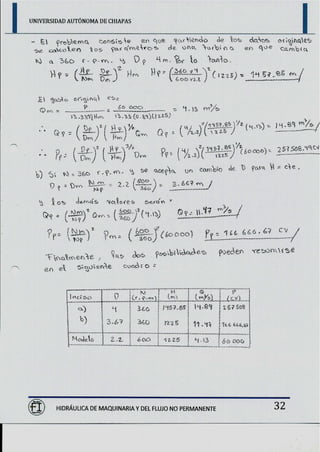 UNIVERSIDAD AUTÓNOMA DE CHIAPAS
- El problema consiste en que partiendo de los datos originales
se calculen los parámetros de una turbina en que cambia
N a 360 r.p.m. y Dp 4m. Por lo tanto.
Hp = (Np Dp / Nm Dm)² Hm Hp = (360 x 4 / 600 x 2.2)² (1225) = 1457.85 m/
El gasto original es:
Qm = P / 13.33ηHm = 60 000 / 13.33 (0.89)(1225) = 4.13 m³/s
∴ Qp = (Dp / Dm)² (Hp / Hm)^½ Qm Qp = (4/2.2)² (1457.85 / 1225)^½ (4.13) = 14.89 m³/s/
∴ Pp = (Dp / Dm)² (Hp / Hm)^3/2 Pm Pp = (4/2.2)² (1457.85 / 1225)^3/2 (60000) = 257508.49CV
b) Si N = 360 r.p.m. y se acepta un cambio de D para H = cte.
Dp = Dm Nm / Np = 2.2 (600 / 360) = 3.667 m/
y los demás valores serán:
Qp = (Nm / Np)² Qm = (600 / 360)² (4.13) Qp = 11.47 m³/s/
Pp = (Nm / Np)² Pm = (600 / 360)² (60000) Pp = 166 666.67 CV/
Finalmente, las dos posibilidades pueden resumirse
en el siguiente cuadro:
Inciso D N (r.p.m) H (m) Q (m³/s) P (CV)
a) 4 360 1457.85 14.89 257508
b) 3.67 360 1225 11.47 166 666.67
Modelo 2.2 600 1225 4.13 60 000
HIDRÁULICA DE MAQUINARIA Y DEL FLUJO NO PERMANENTE 32